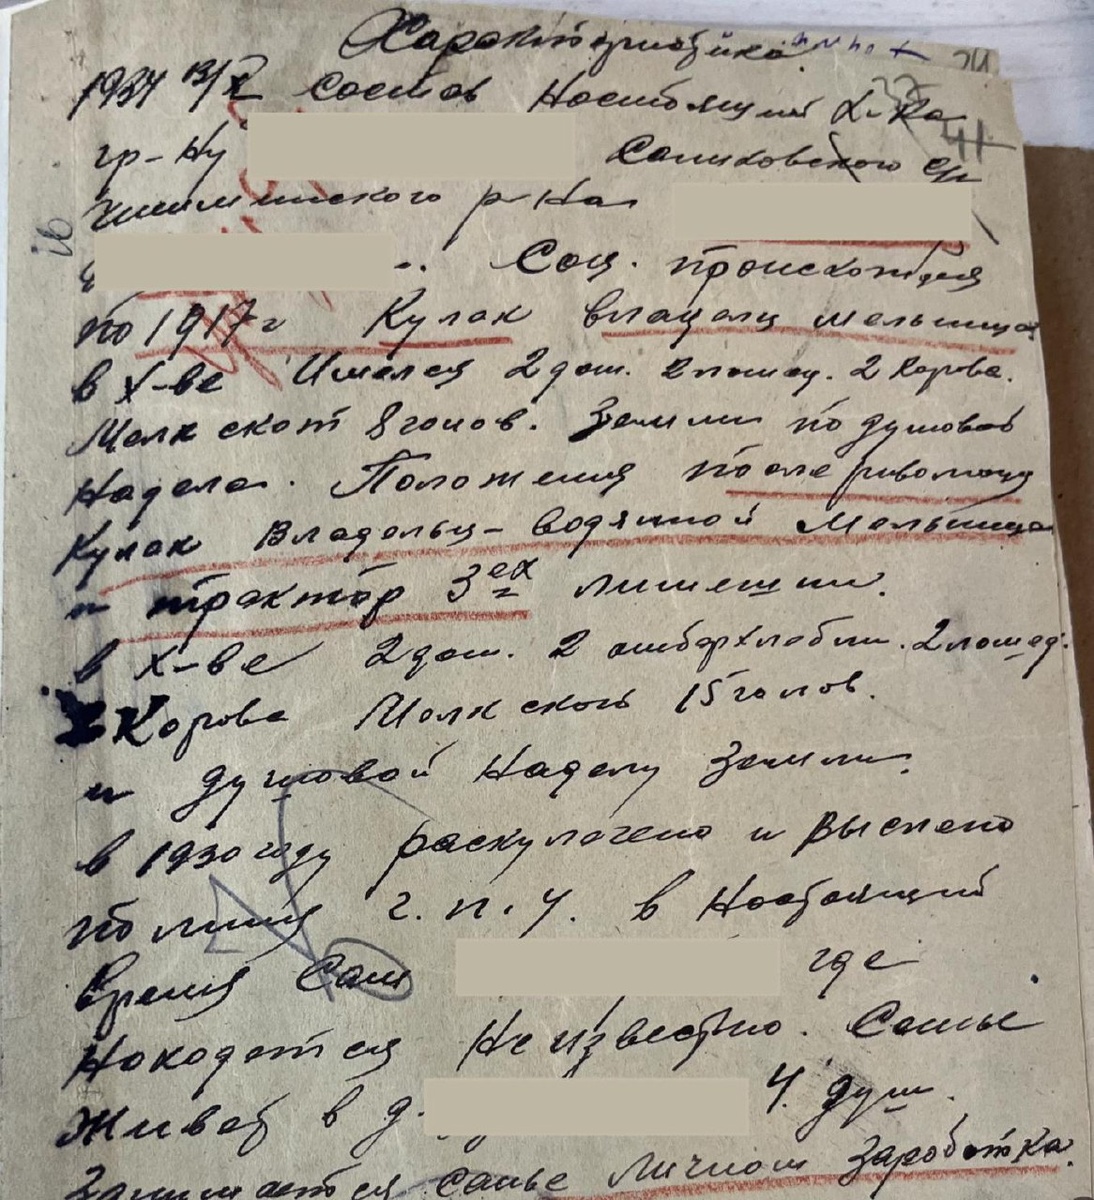 Характиристика
1934 13/X Состов Ностоящий Х-ка
гр-ну Салиховского с/с
Чишминского р-на
Соц. происхождия
по 1917 г Кулак владелц мельница
в х-ве Имелся 2 дом. 2 лошад. 2 Корова.
Мелк скот 8 голов. Земли по душовой
Надела. Положения после риволюция
Кулак Владельц-водяной мельница
и трактор 3ех лишении.
в х-ве 2 дом. 2 амбар хлебли. 2 лошад.
Корова Мелк скот 15 голов.
и душовой Наделу Земли.
в 1930 году раскулачено и Выслено
по линия г.п.у. в Ностоящий
Время Сам где
Находятся Неизвестно. Семье
Живет в д. 4. душ.
Занимается семье личном Заработка.